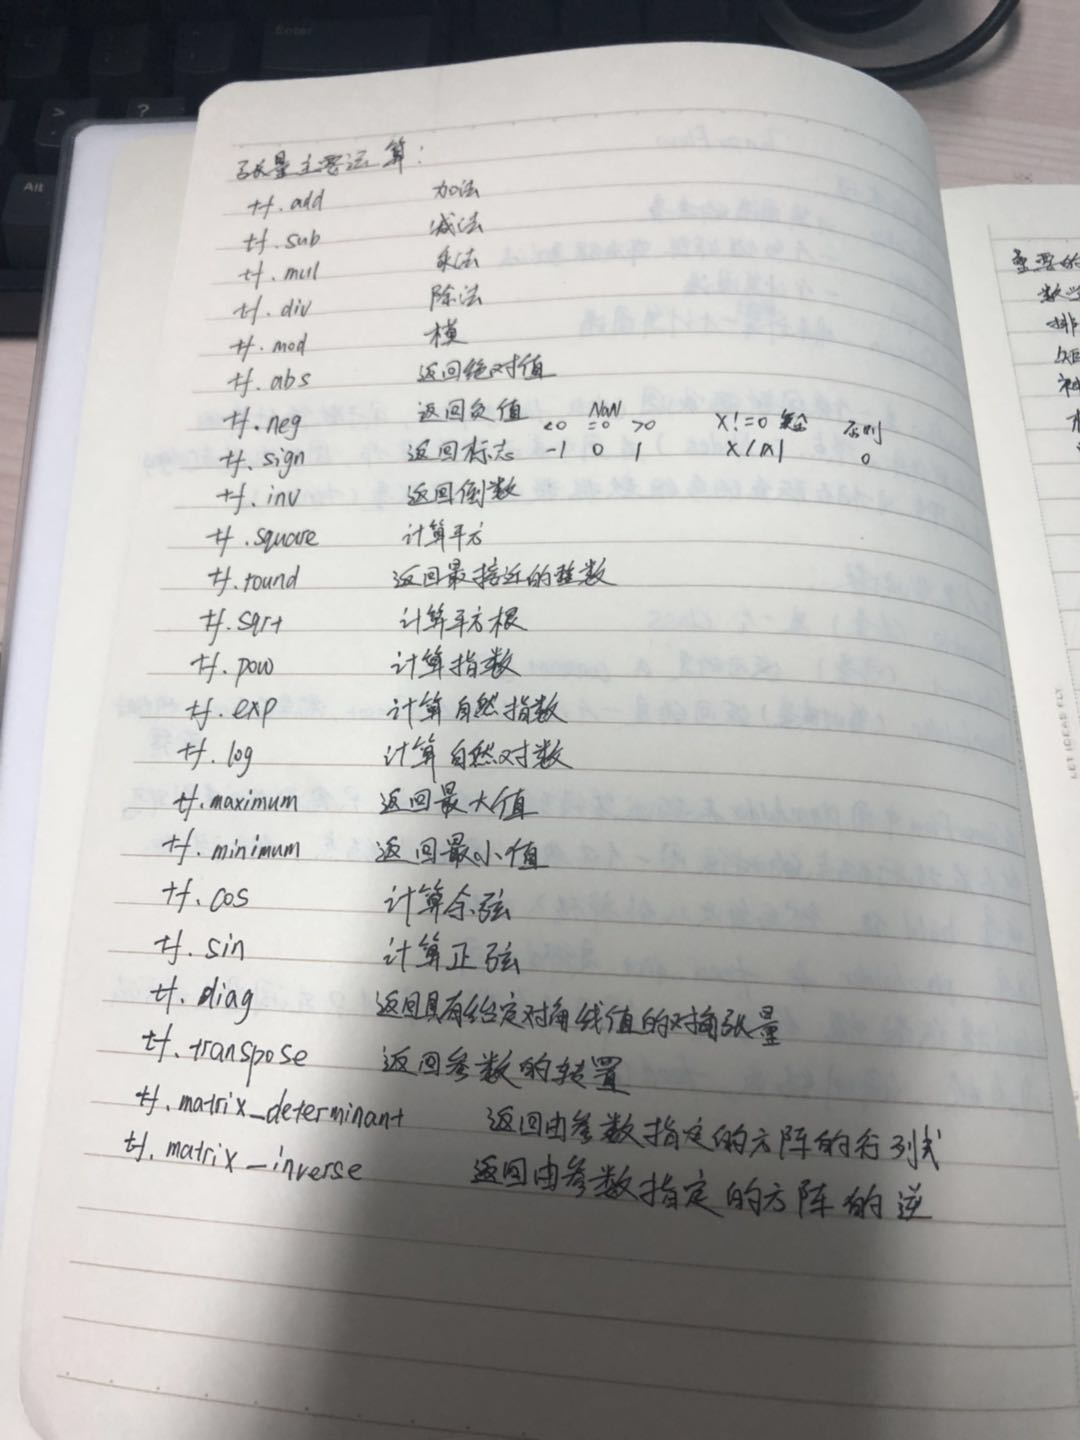 张量主要运算:
tf.add 加法
tf.sub 减法
tf.mul 乘法
tf.div 除法
tf.mod 模
tf.abs 返回绝对值
tf.neg 返回负值
<0 =0 NaN >0 X!=0 复合 否则
tf.sign 返回标志 -1 0 1 X/|X| 0
tf.inv 返回倒数
tf.square 计算平方
tf.round 返回最接近的整数
tf.sqrt 计算平方根
tf.pow 计算指数
tf.exp 计算自然指数
tf.log 计算自然对数
tf.maximum 返回最大值
tf.minimum 返回最小值
tf.cos 计算余弦
tf.sin 计算正弦
tf.diag 返回具有给定对角线值的对角张量
tf.transpose 返回参数的转置
tf.matrix_determinant 返回由参数指定的方阵的行列式
tf.matrix_inverse 返回由参数指定的方阵的逆
重要的
数学
排
矩
神
LET IDEAS FLY
Enter
Alt
>
?